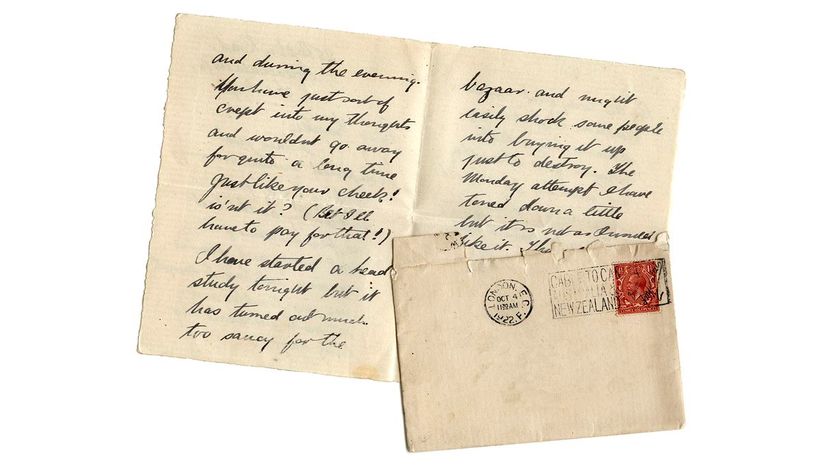 and during the evening.
You have just sort of
crept into my thoughts
and wouldnt go away
for quite a long time
Just like your cheek!
is'nt it? (Bet I'll
have to pay for that!)
I have started a head
study tonight but it
has turned out much
too saucy for the
bazaar. and might
easily shock some people
into buying it up
just to destroy. The
Monday attempt I have
toned down a little
but it is not as I would
like it. The
LONDON. E.C.
OCT 4
11 AM
1922. F.
CABLE TO CA
NEW ZEALAND